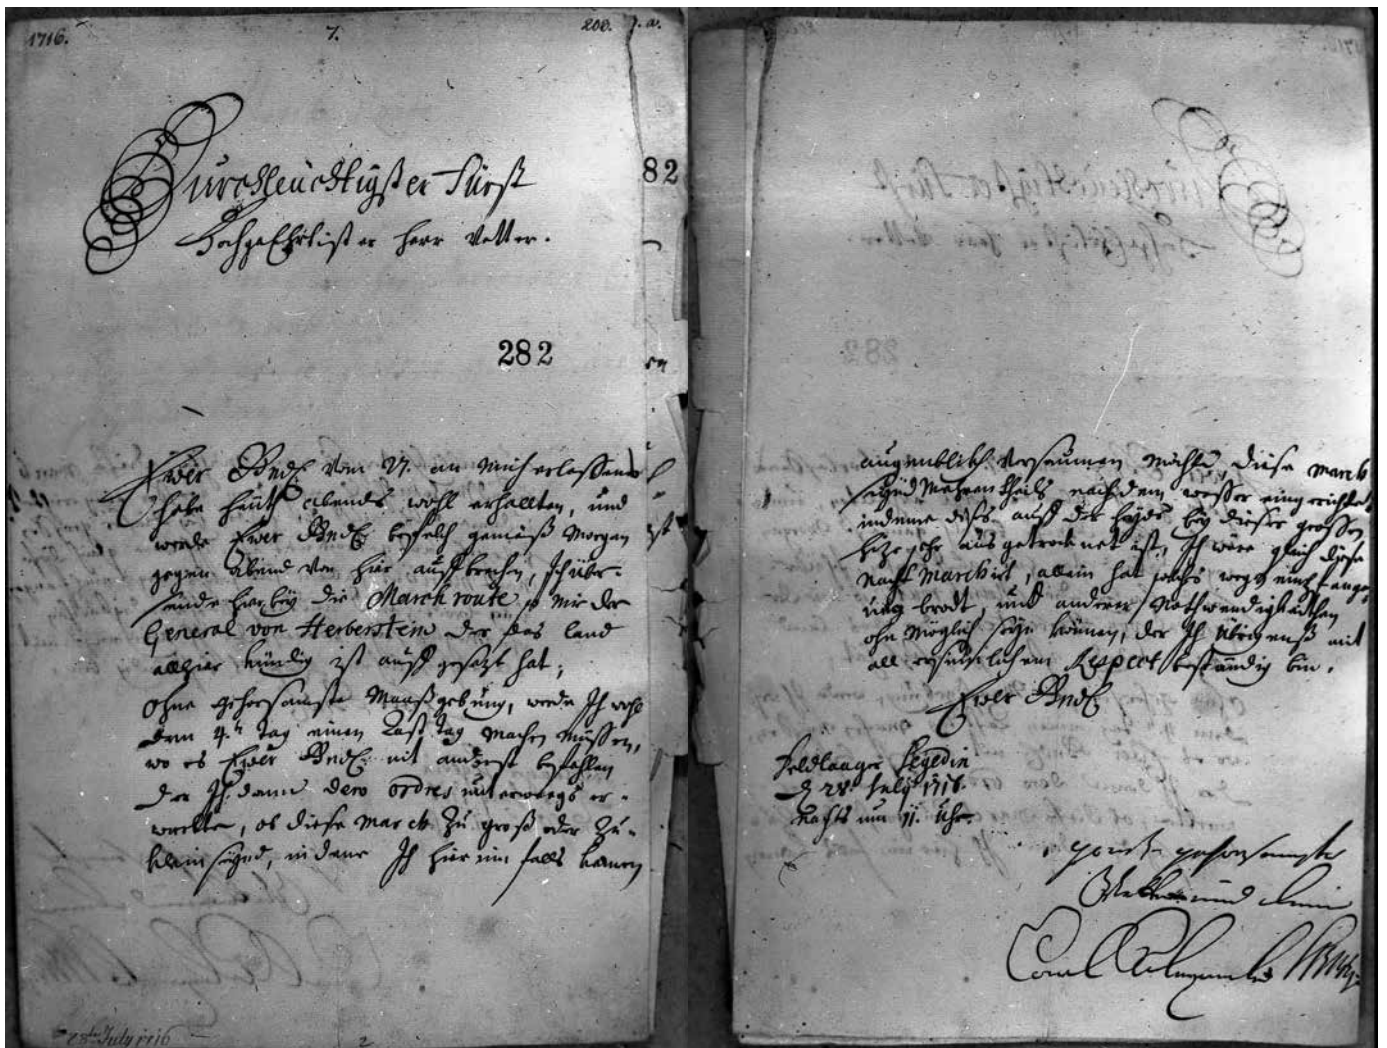 1716.
7.
200.
J. a.
Durchleuchtigster Fürst
HochgeEhrtister Herr Vetter.
82
282
Ewer Gndl. vom 27. an mich erlassenes
habe heüth abends wohl erhallten, und
werde Ewer Gndl. befelch gemäß Morgen
gegen Abend von hier aufbrechen, Ich über-
sende hierbey die March route, so mir der
General von Herberstein der das land
allhier kündig ist auff gesezt hat;
Ohne gehorsamste Maaßgebung, werde Ich wohl
dem 4.ten tag einen Rast tag machen müssen,
wo es Ewer Gndl. nit anderst befehlen
der Ich dann dero ordres unterweegs er-
wartte, ob diese march zu groß oder zu-
klein seynd, in deme Ich hierin falls keinen
28th July 1716
2
augenblikh versaumen möchte, diese march
seynd mehren theils nach dem wasser eingerichtet
indeme diß auff der heyde bey dieser grossen
hize sehr ausgetrocknet ist, Ich wäre gleich diese
nacht marchirt, allein hat solches wegen
brodt, und anderer Nothwendigkeithen
ohnmöglich seyn können, der Ich übrigenß mit
all ersinnlichem Respect beständig bin,
Ewer Gndl.
Feldlaager Segedin
28. July 1716.
Nachts um 11. Uhr.
gehorsambster
Vetter und diener